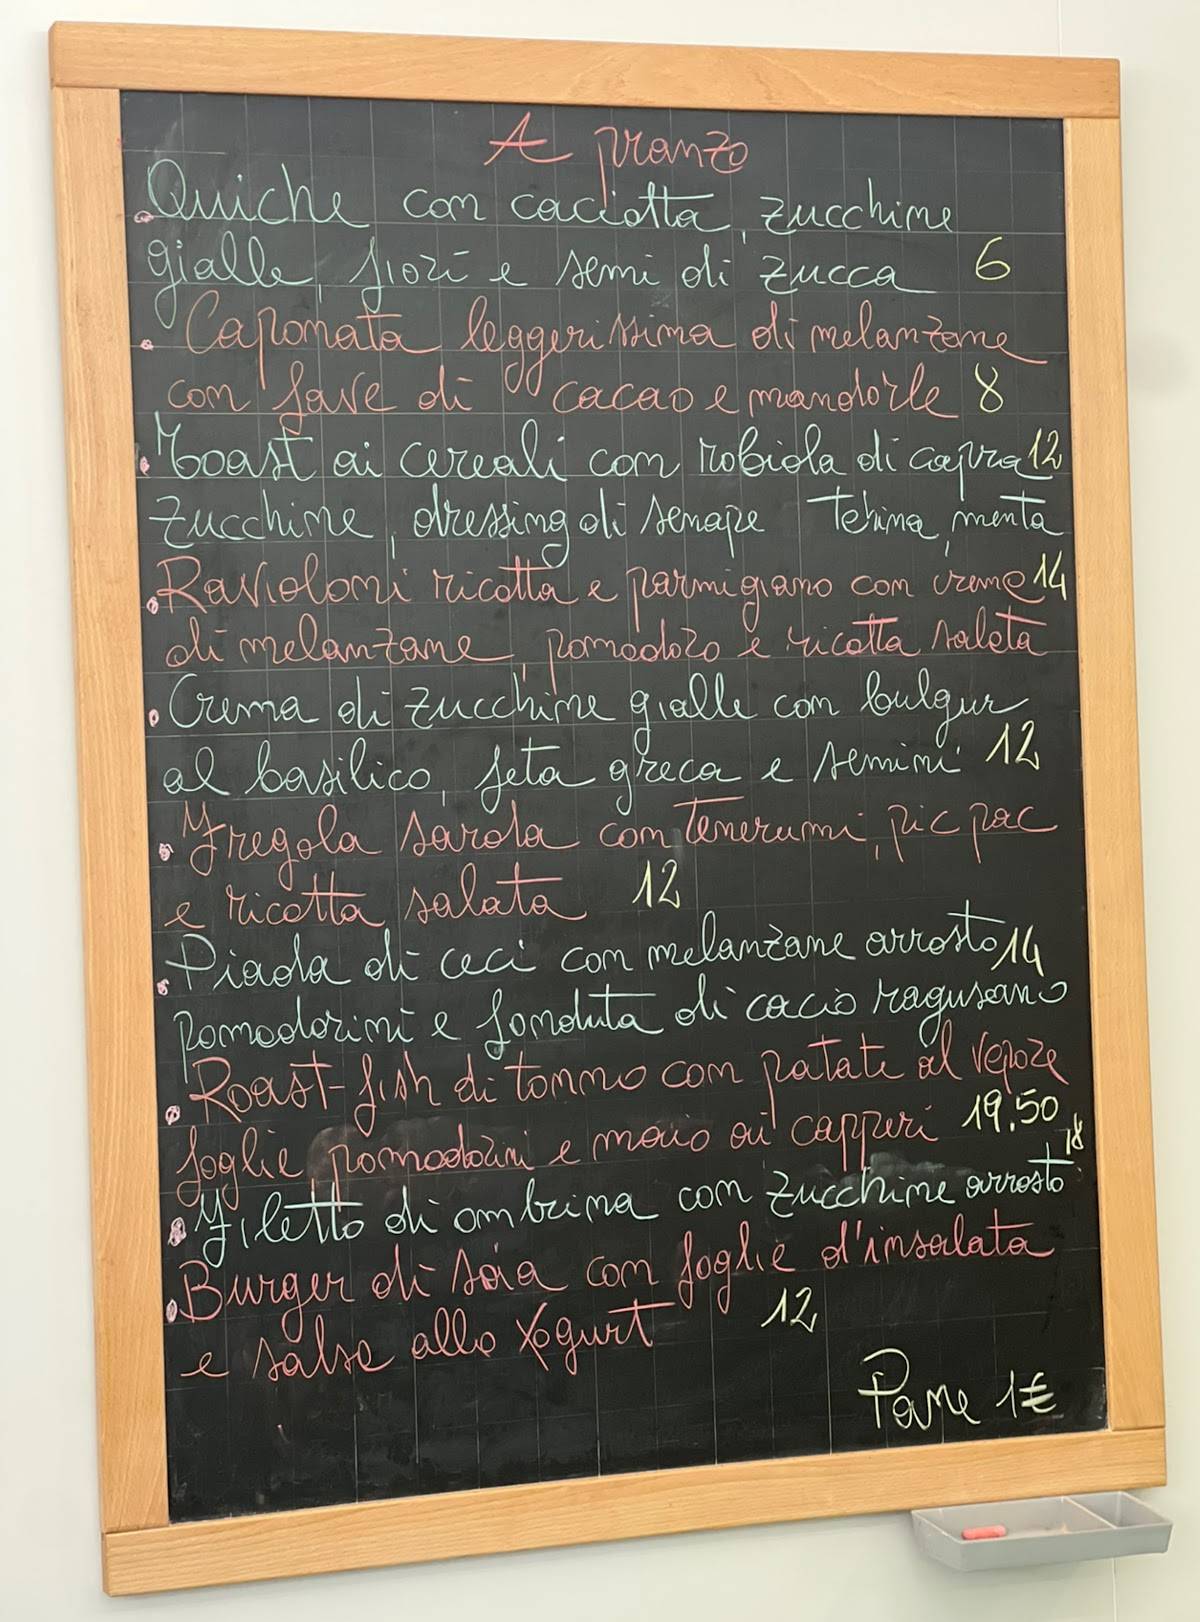 A pranzo
• Quiche con caciotta, zucchine
gialle, fiori e semi di zucca 6
• Caponata leggerissima di melanzane
con fave di cacao e mandorle 8
• Toast ai cereali con robiola di capra 12
zucchine, dressing di senape Tehina, menta
• Ravioloni ricotta e parmigiano con creme 14
di melanzane, pomodoro e ricotta salata
• Crema di zucchine gialle con bulgur
al basilico, feta greca e semini 12
• Fregola sarda con Tenerumi, pic pac
e ricotta salata 12
• Piada di ceci con melanzane arrosto 14
pomodorini e fonduta di cacio ragusano
• Roast-fish di tonno con patate al vapore
foglie pomodorini e maio ai capperi 19.50
• Filetto di ombrina con zucchine arrosto 18
• Burger di soia con foglie d'insalata
e salsa allo Yogurt 12
Pane 1€